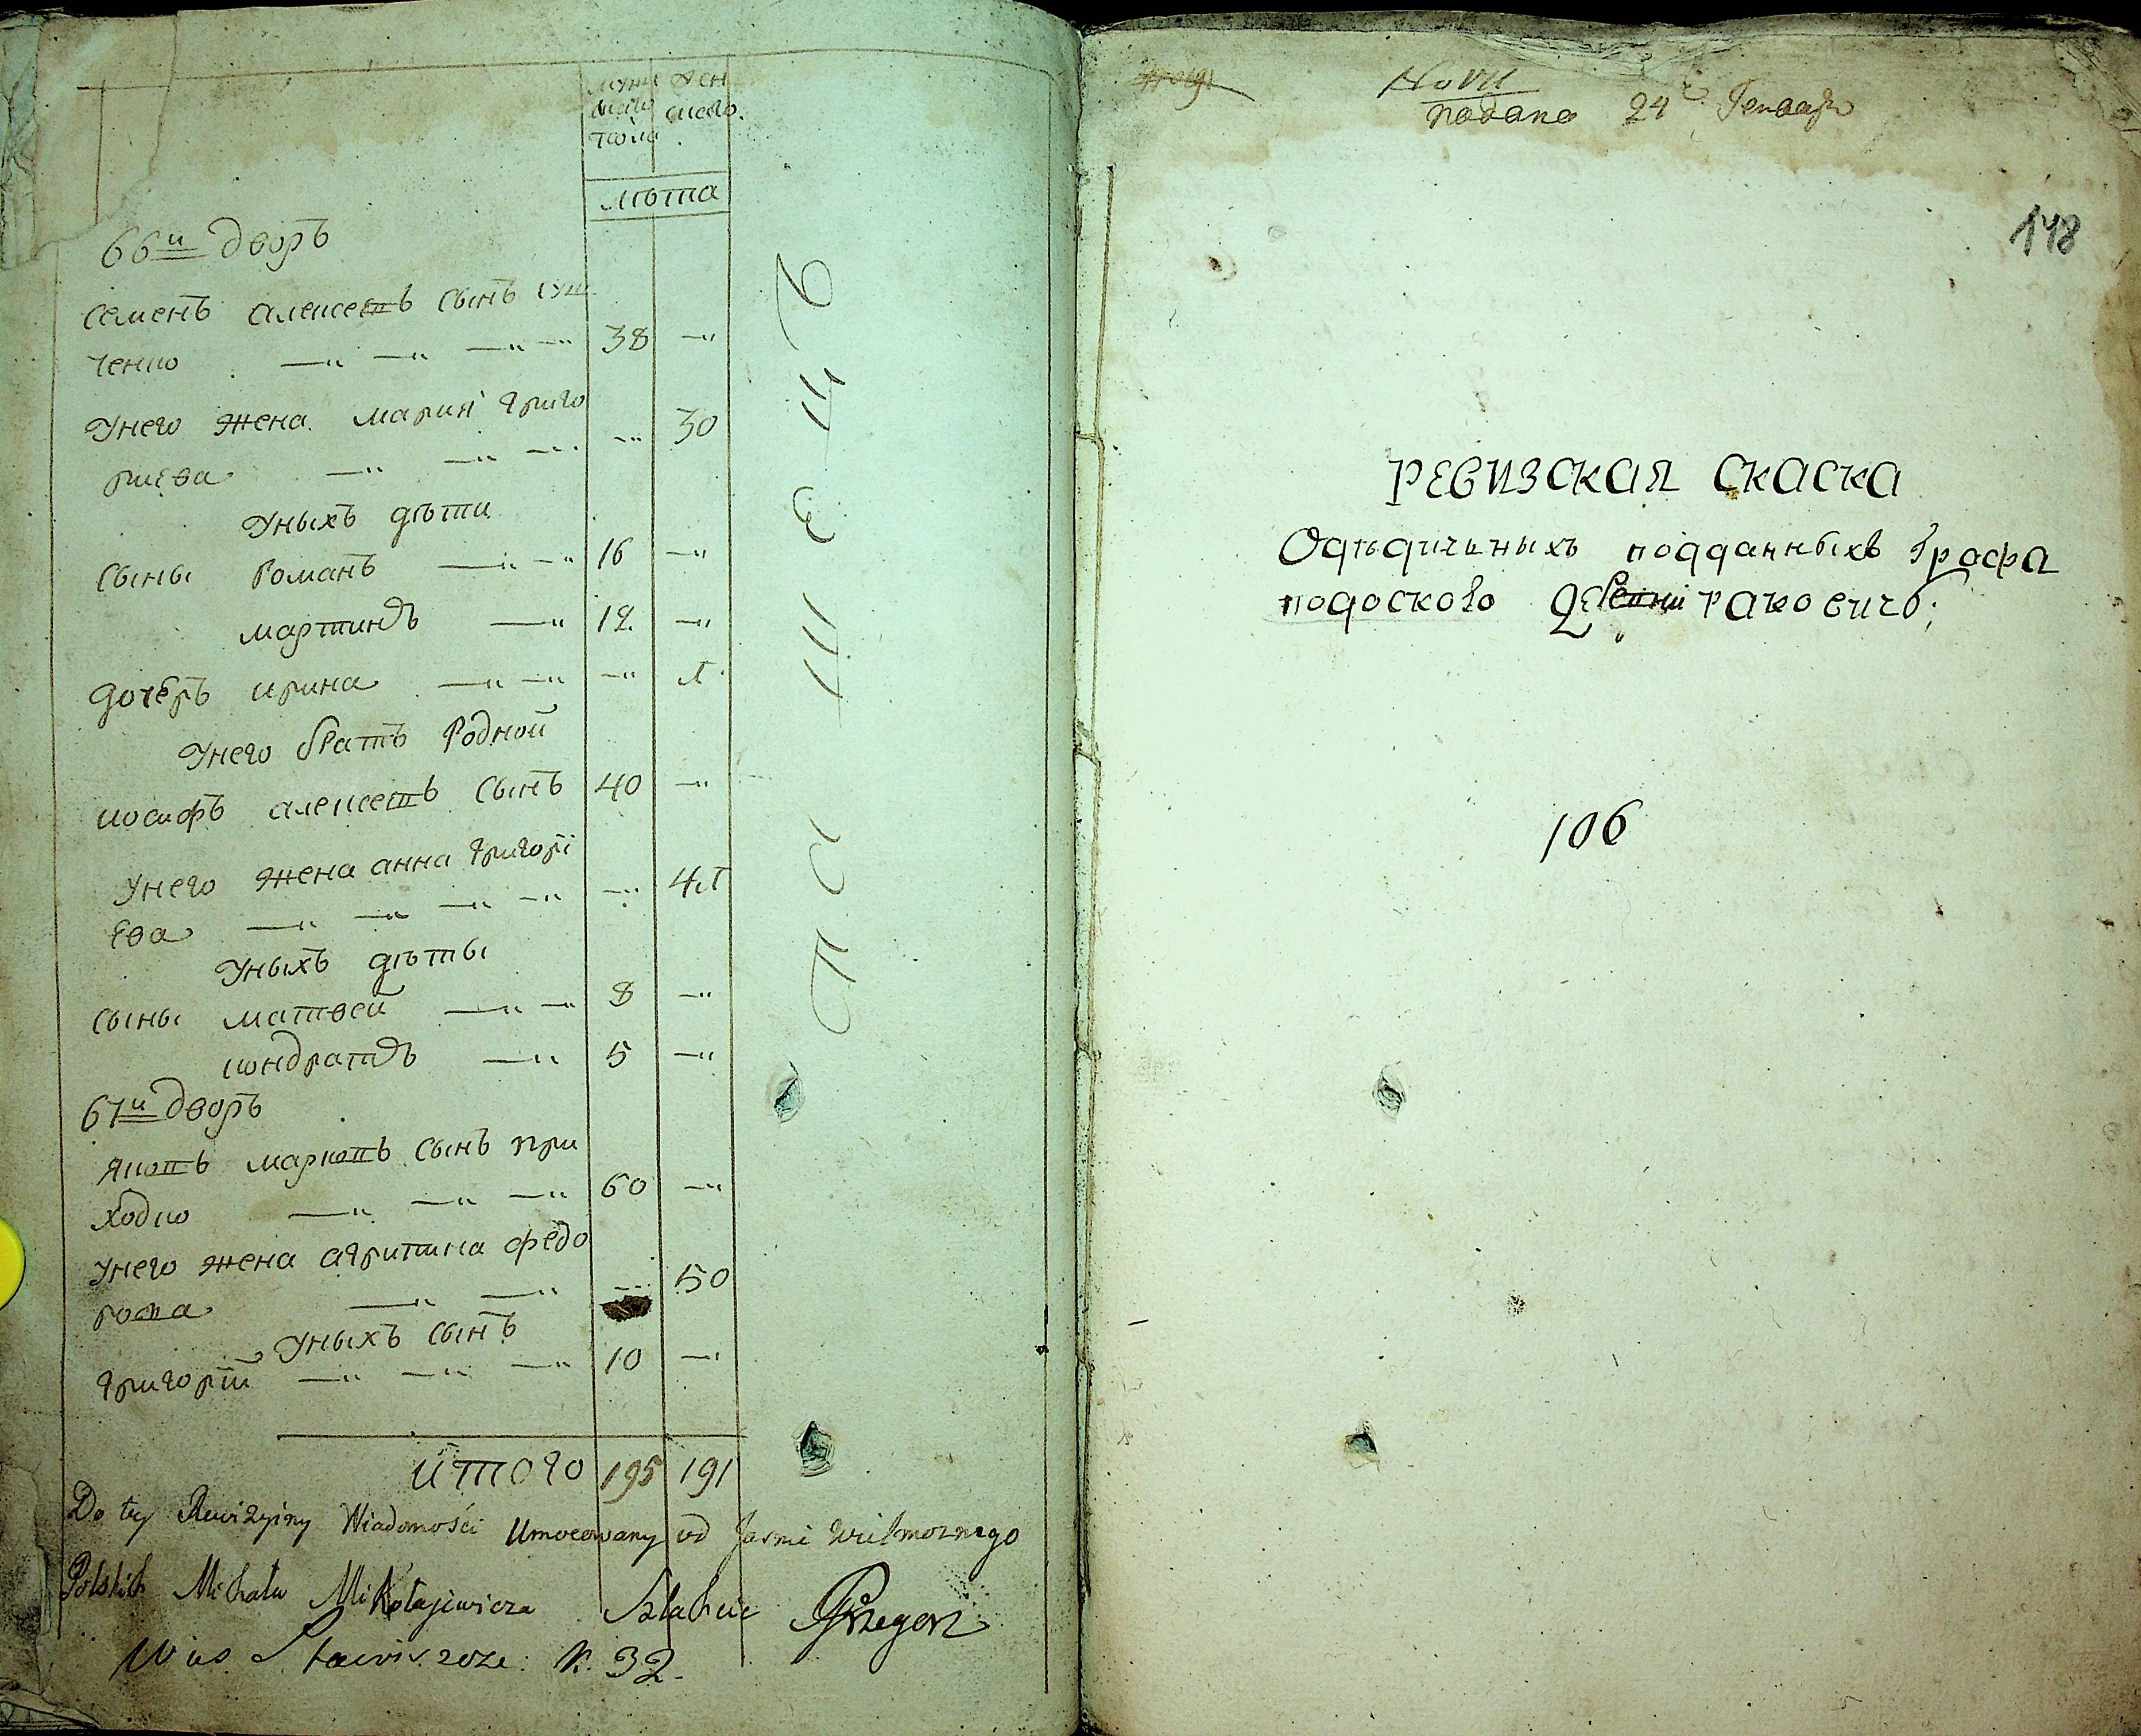 мужеска пола
женского
лѣта
66й дворъ
семенъ алексеевъ сынъ суп
ченко 38
Унего жена мария григо
риева 30
Уныхъ дѣти
сыны романъ 16
мартинъ 12
дочеръ ирина
Унего братъ родной
иосифъ алексеевъ сынъ 40
Унего жена анна григорi
ева
Уныхъ дѣты
сыны матвей 8
кондратъ 5
67й дворъ
яковъ марковъ сынъ при
ходко 60
Унего жена агрипина федо
рова 50
Уныхъ сынъ
григорiй 10
итого 195 191
Do tey Rewizyiny Wiadomości Umocowany od Jasnie Wielmoznego
Michała Mikołajewicza
N. 32.
подано 24 Генваря
148
РЕВИЗСКАЯ СКАСКА
Одѣдичныхъ подданныхъ Графа
подоского деревни раковичъ;
106